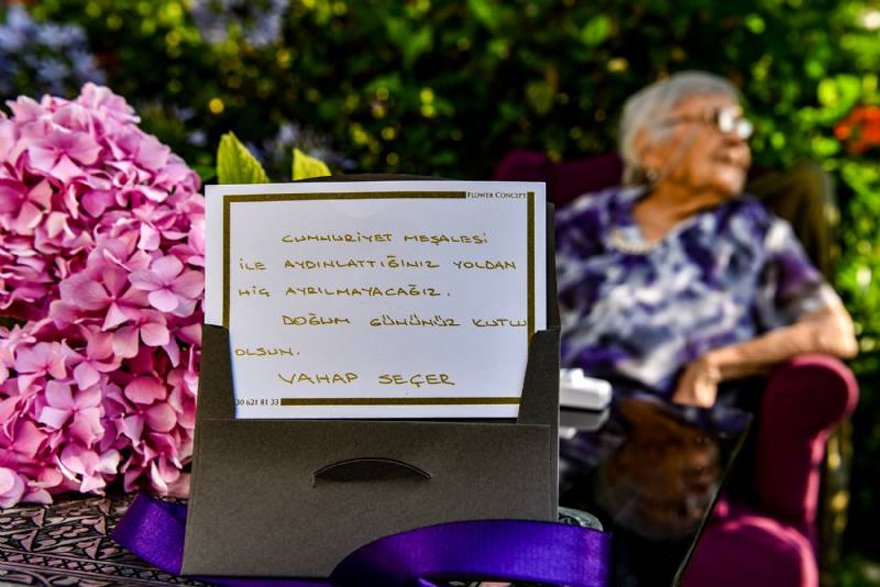 FLOWER CONCEPT
CUMHURİYET MEŞALESİ
İLE AYDINLATTIĞINIZ YOLDAN
HİÇ AYRILMAYACAĞIZ.
DOĞUM GÜNÜNÜZ KUTLU
OLSUN.
VAHAP SEÇER
30 621 81 33